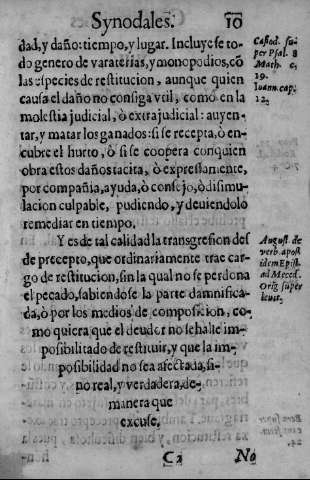 Synodales. 10
dad, y daño: tiempo, y lugar. Incluyese to-
do genero de varaterias, y monopodios, cõ
las especies de restitucion, aunque quien
causa el daño no consiga vtil, como en la
molestia judicial, ò extrajudicial: auyen-
tar, y matar los ganados: si se recepta, ò en-
cubre el hurto, ò si se coopera con quien
obra estos daños tacita, ò expressamente,
por compañia, ayuda, ò consejo, ò disimu-
lacion culpable, pudiendo, y deuiendolo
remediar en tiempo.
Y es de tal calidad la transgresion des
de precepto, que ordinariamente trae car-
go de restitucion, sin la qual no se perdona
el pecado, sabiendose la parte damnifica-
da, ò por los medios de composicion, co-
mo quiera que el deudor no se halle im-
posibilitado de restituir, y que la im-
posibilidad no sea afectada, si-
no real, y verdadera, de-
manera que
excuse,
C2 No
Casiod. su-
per Psal. 8
Math. c.
19.
Ioann. cap.
12.
August. de
verb. apost
idem Epist.
ad Maced.
Orig. super
leuit.